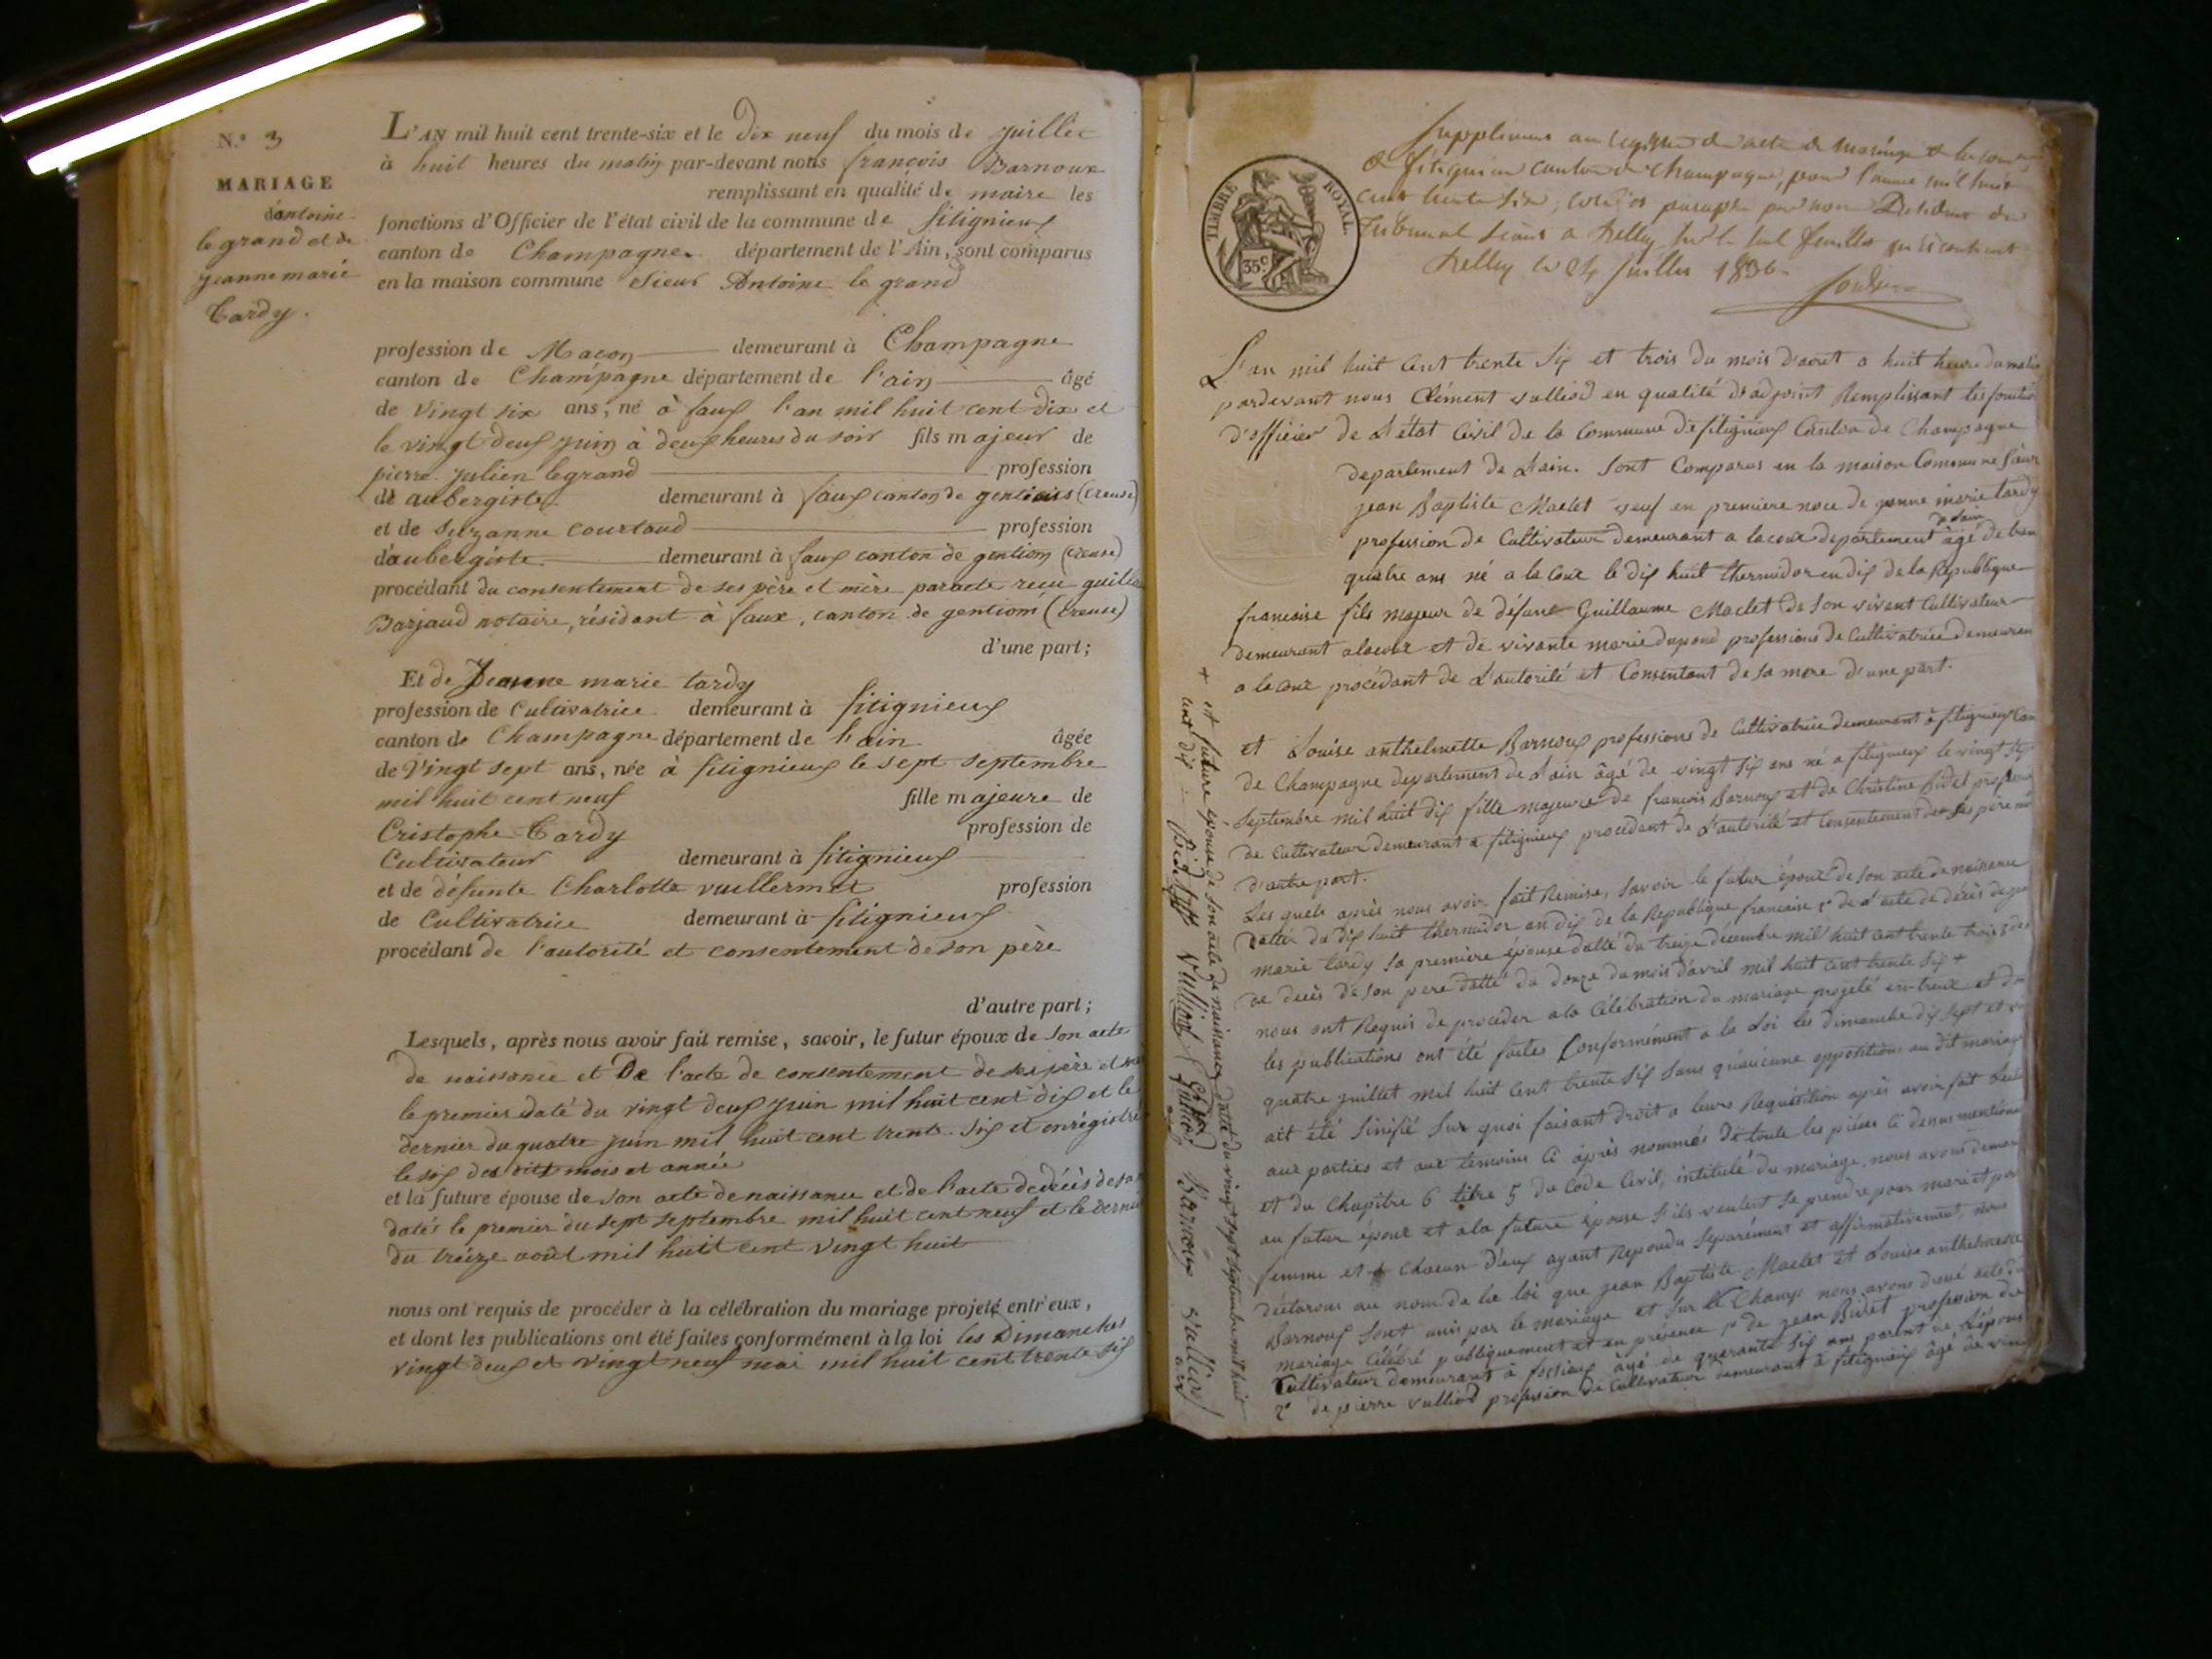 N.° 3
MARIAGE
d'antoine
le grand et de
jeanne marie
Tardy.
L'AN mil huit cent trente-six et le Dix neuf du mois de juillet
à huit heures du matin par-devant nous françois Barnoux
remplissant en qualité de maire les
fonctions d'Officier de l'état civil de la commune de fitignieux
canton de Champagne département de l'Ain, sont comparus
en la maison commune sieur Antoine le grand
profession de Maçon demeurant à Champagne
canton de Champagne département de l'ain âgé
de Vingt six ans, né à faux l'an mil huit cent dix et
le vingt deux juin à deux heures du soir fils majeur de
pierre julien legrand profession
de aubergiste demeurant à faux canton de (creuse)
et de Suzanne courtaud profession
d'aubergiste demeurant à faux canton de gentiom (creuse)
procédant du consentement de ses père et mère par acte reçu
Barjaud notaire, résidant à faux, canton de gentiom (creuse)
d'une part;
Et de Jeanne marie tardy
profession de Cultivatrice demeurant à fitignieux
canton de Champagne département de l'ain âgée
de Vingt sept ans, née à fitignieux le sept septembre
mil huit cent neuf fille majeure de
Cristophe Tardy profession de
Cultivateur demeurant à fitignieux
et de défunte Charlotte vuillermet profession
de Cultivatrice demeurant à fitignieux
procédant de l'autorité et consentement de son père
d'autre part;
Lesquels, après nous avoir fait remise, savoir, le futur époux de son acte
de naissance et De l'acte de consentement de ses père et
le premier daté du vingt deux juin mil huit cent dix et le
dernier du quatre juin mil huit cent trente-six et enrégistré
le six des dits mois et année
et la future épouse de son acte de naissance et de l'acte de décès de sa
datés le premier du sept septembre mil huit cent neuf et le dernier
du treize août mil huit cent vingt huit
nous ont requis de procéder à la célébration du mariage projeté entr'eux,
et dont les publications ont été faites conformément à la loi les Dimanches
vingt deux et vingt neuf mai mil huit cent trente six
TIMBRE ROYAL.
35 c
Supplément au registre de acte de mariage de la
de fitignieu canton de Champagne, pour l'année mil huit
cent trente six, coté et paraphé par nous Président du
Tribunal séant à Belley
Belley le 24 juillet 1836
L'an mil huit cent trente six et trois du mois d'aout a huit heure du matin
pardevant nous Clément vulliod en qualité d'adjoint Remplissant les
d'officier de L'état Civil de la Commune de fitignieux Canton de Champagne
departement de Lain. Sont Comparus en la maison Commune
jean Baptiste Maclet veuf en première noce de jeanne marie tardy
profession de Cultivateur demeurant a departement de Lain âgé de
quatre ans né a le dix huit thermidor en dix de la République
francaise fils majeur de défunt Guillaume Maclet de son vivant Cultivateur
demeurant et de vivante marie dupond professions de Cultivatrice
procédant de L'autorité et Consentant de sa mere d'une part.
et Louise anthelmette Barnoux professions de Cultivatrice demeurant à fitignieux
de Champagne departement de Lain âgé de vingt six ans né a fitignieux le vingt
Septembre mil huit dix fille majeure de francois Barnoux et de Christine Bidet
de Cultivateur demeurant a fitignieux procédant de L'autorité et Consentement de ses père
d'autre part.
Les quels après nous avoir fait Remise, savoir le futur époux de son acte de naissance
datté du dix huit thermidor an dix de la République francaise 2° de l'acte de décès de
marie tardy sa première épouse datté du treize décembre mil huit cent trente trois
de décès de son pere datté du douze du mois d'avril mil huit cent trente six +
nous ont Requis de proceder a la Célébration du mariage projeté entreux et
les publications ont été faites Conformément a la Loi les dimanche dix sept et
quatre juillet mil huit cent trente six sans qu'aucune opposition au dit mariage
ait été sinifié Sur quoi faisant droit a leurs Requisition après avoir fait
aux parties et aux temoins ci après nommés de toute les pièces ci dessus
et du Chapitre 6 titre 5 du Code Civil, intitulé du mariage, nous avons
au futur époux et a la future épouse s'ils veulent se prendre pour mari et pour
femme et chacun d'eux ayant Repondu Séparément et affirmativement nous
déclarons au nom de la loi que jean Baptiste Maclet et Louise anthelmette
Barnoux sont unis par le mariage et sur le Champ nous avons
mariage Célébré publiquement et en présence 1° de jean Bidet profession de
Cultivateur demeurant à âgé de quarante six ans parent de
2° de pierre vulliod profession de Cultivateur demeurant à fitignieux âgé de
+ et la future épouse de son acte de naissance datté du vingt sept septembre mil huit
cent dix
Vulliod
Barnoux Vulliod